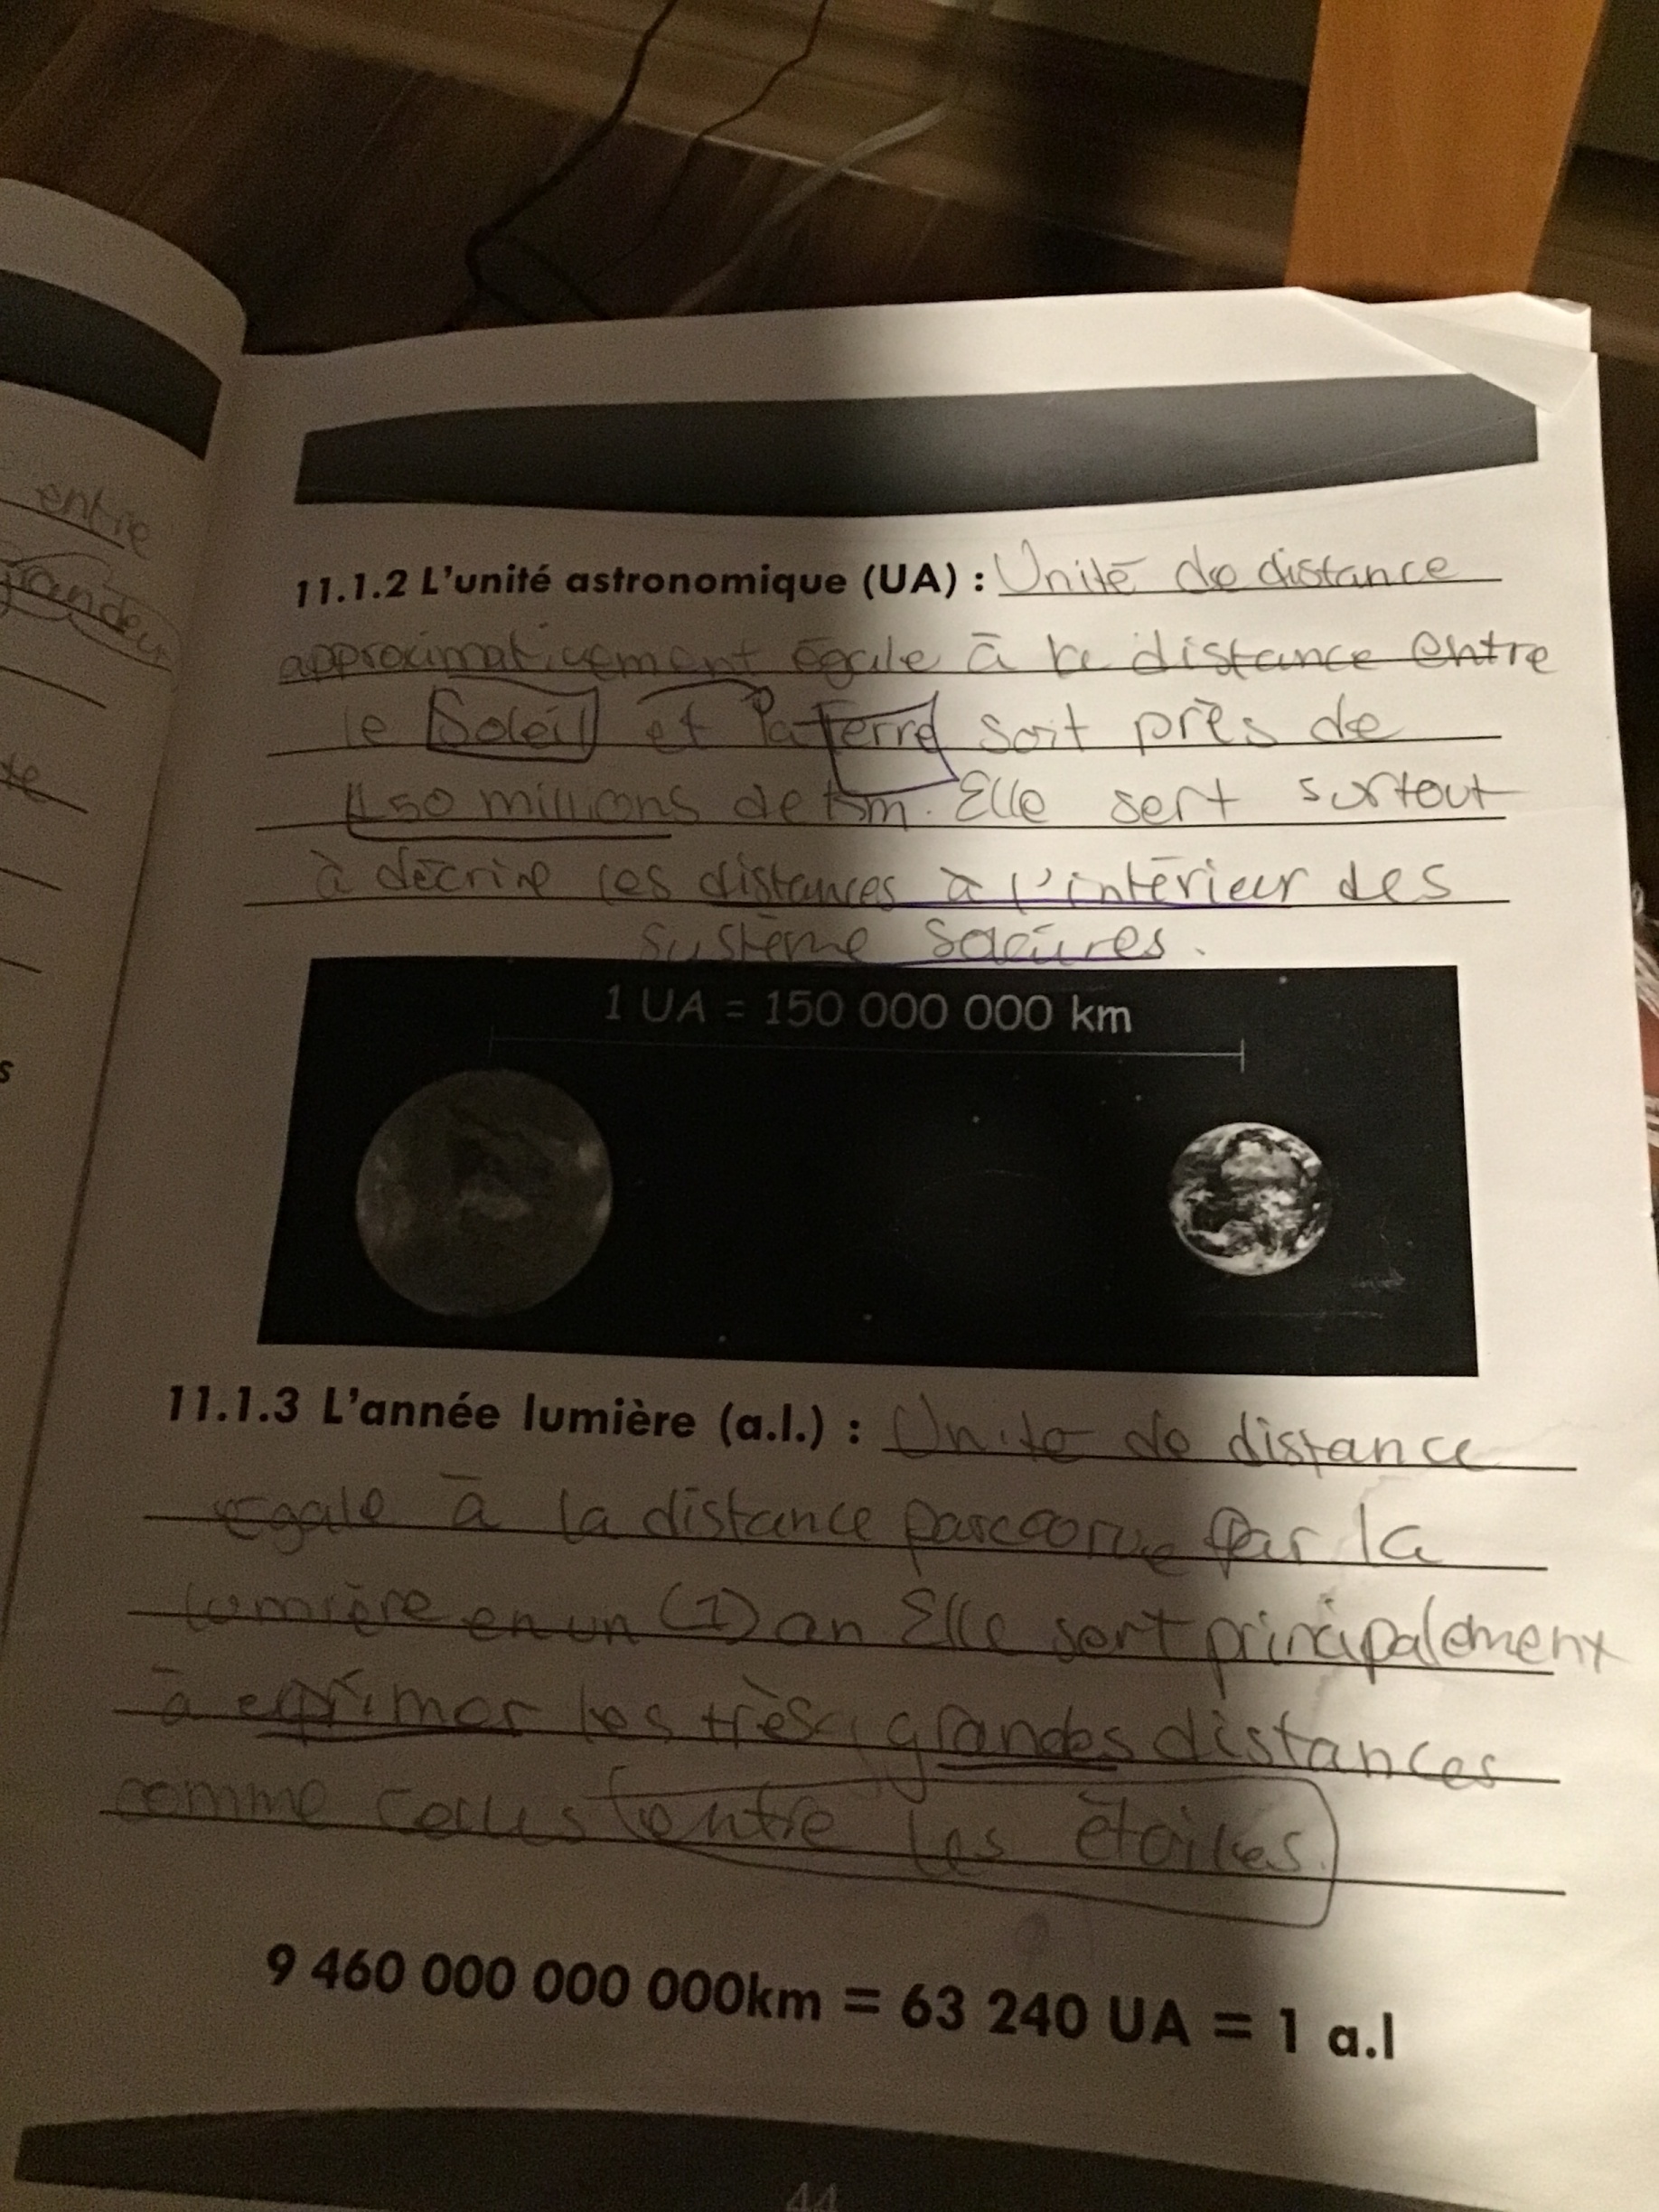 entre
grandeur
11.1.2 L'unité astronomique (UA) : Unité de distance
approximativement égale à la distance entre
le Soleil et la Terre soit près de
150 millions de km. Elle sert surtout
à décrire les distances à l'intérieur des
système solaires.
1 UA = 150 000 000 km
11.1.3 L'année lumière (a.l.) : Unité de distance
égale à la distance parcourue par la
lumière en un (1) an Elle sert principalement
à exprimer les très grandes distances
comme celles entre les étoiles.
9 460 000 000 000km = 63 240 UA = 1 a.l
44